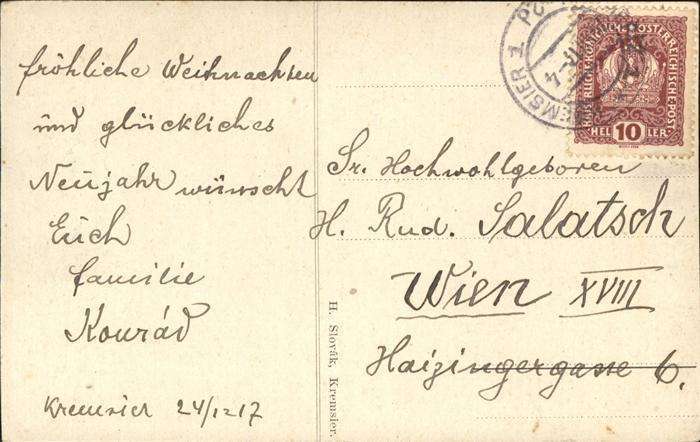 fröhliche Weihnachten
und glückliches
Neujahr wünscht
Euch
familie
Konrád
Kremsier 24/12 17
H. Slovák, Kremsier.
KREMSIER 1
KAISERLICHE KÖNIGLICHE ÖSTERREICHISCHE POST
HEL 10 LER
Sr. Hochwohlgeboren
H. Rud. Salatsch
Wien XVIII
Haizingergasse 6.